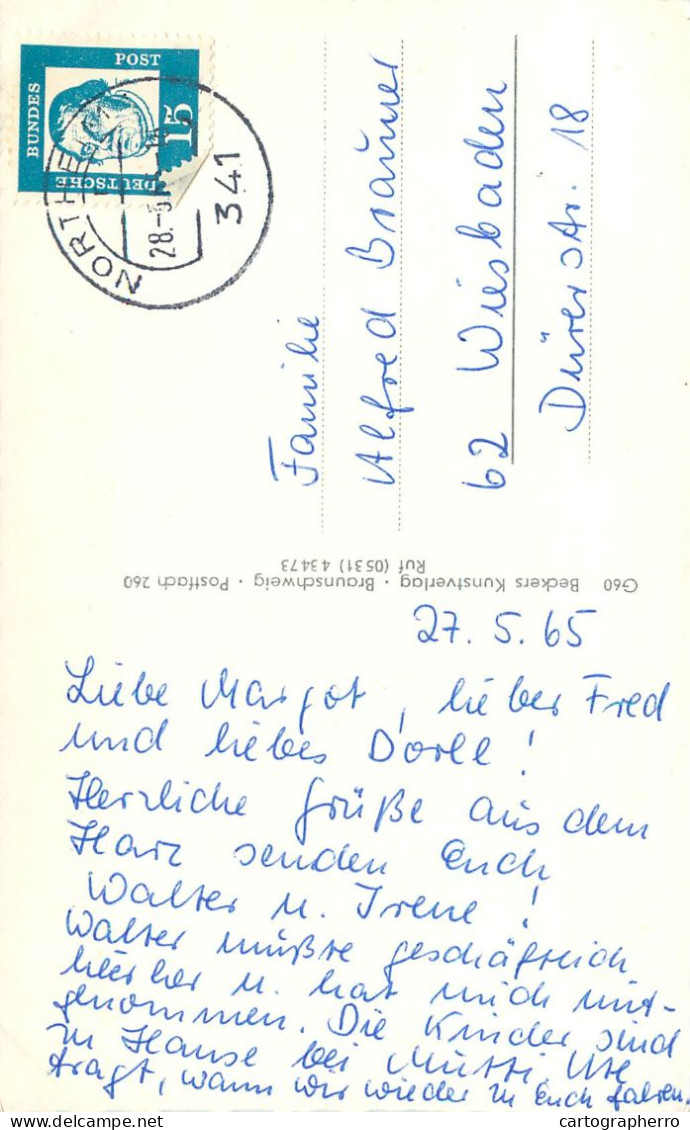 DEUTSCHE
BUNDES
POST
15
NORTHEIM
28.-5.
341
Familie
Alfred Brauner
62 Wiesbaden
Dürerstr. 18
G60 Beckers Kunstverlag · Braunschweig · Postfach 260
Ruf (0531) 43473
27. 5. 65
Liebe Margot, lieber Fred
und liebes Dorle!
Herzliche Grüße aus dem
Harz senden Euch
Walter u. Irene!
Walter müßte geschäftlich
hierher u. hat mich mit-
genommen. Die Kinder sind
zu Hause bei Mutti. Ute
fragt, wann wir wieder zu Euch fahren.
cartographerro
delcampe.net